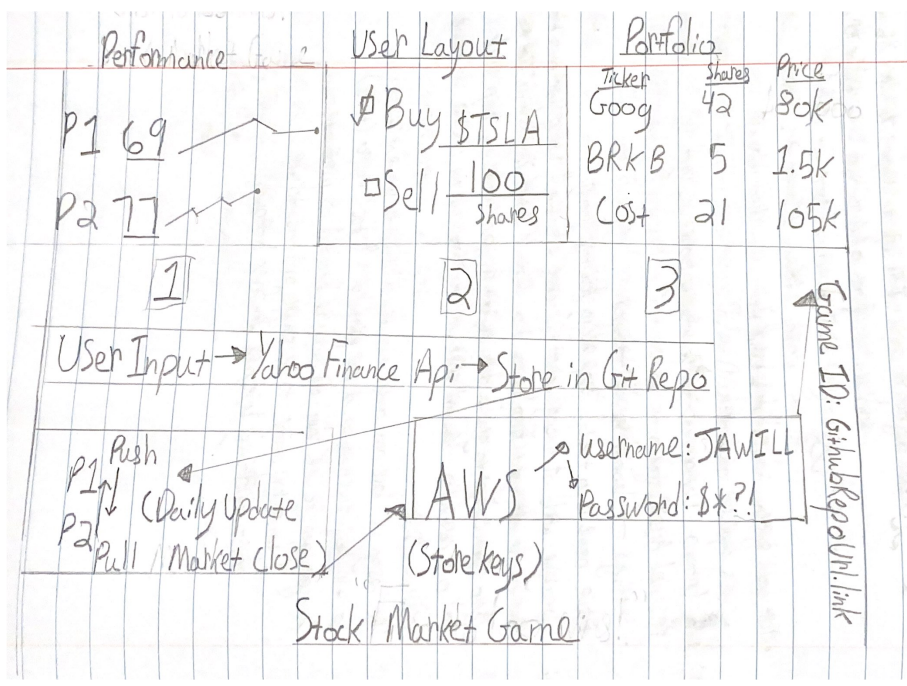 Performance
P1 69
P2 77
1
User Layout
Buy $TSLA
Sell 100
Shares
2
Portfolio
Ticker Shares Price
Goog 42 80k
BRKB 5 1.5k
Cost 21 105k
3
User Input → Yahoo Finance Api → Store in Git Repo
P1 Push
(Daily Update
P2 Pull Market Close)
AWS
(Store keys)
Username: JAWILL
Password: $*?!
Game ID: GithubRepoUrl.link
Stock Market Game